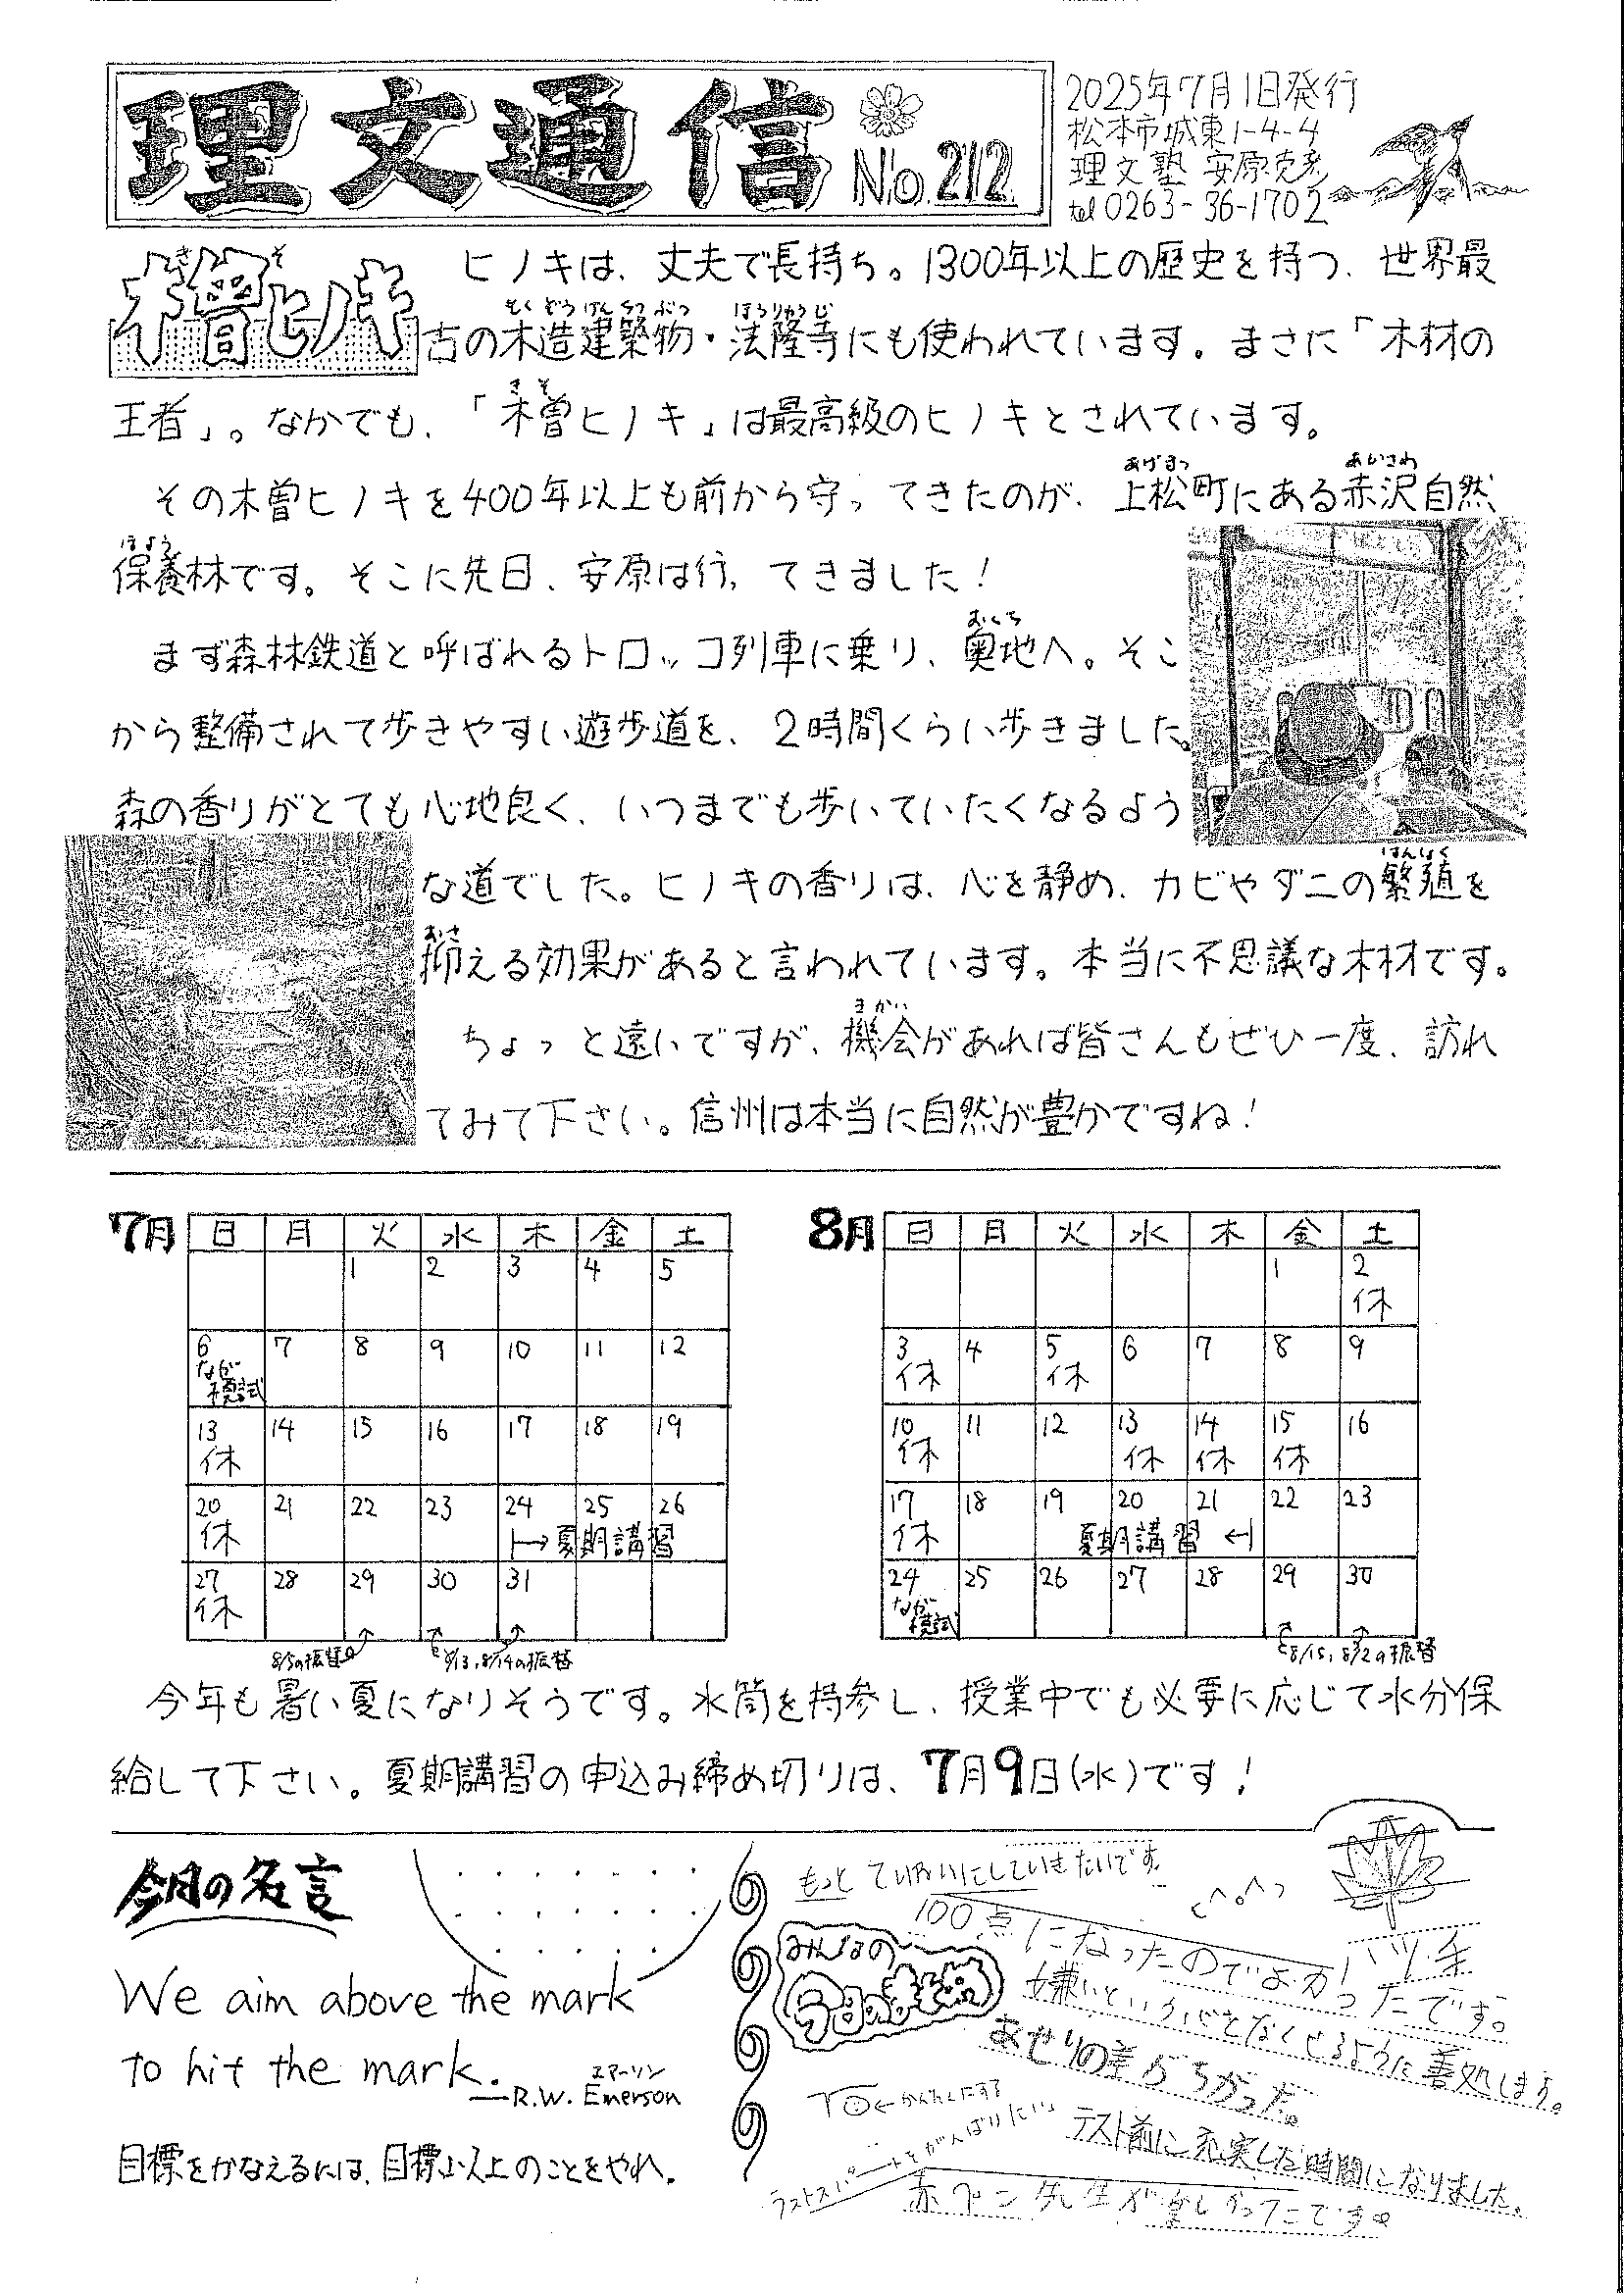 理文通信 No.212
2025年7月1日発行
松本市城東1-4-4
理文塾 安原克彦
tel 0263-36-1702
木曽ヒノキ
きそ
ヒノキは、丈夫で長持ち。1300年以上の歴史を持つ、世界最
もくぞうけんちくぶつ ほうりゅうじ
古の木造建築物・法隆寺にも使われています。まさに「木材の
きそ
王者」。なかでも、「木曽ヒノキ」は最高級のヒノキとされています。
あげまつ あかさわ
その木曽ヒノキを400年以上も前から守ってきたのが、上松町にある赤沢自然
ほよう
保養林です。そこに先日、安原は行ってきました!
おくち
まず森林鉄道と呼ばれるトロッコ列車に乗り、奥地へ。そこ
から整備されて歩きやすい遊歩道を、2時間くらい歩きました。
森の香りがとても心地良く、いつまでも歩いていたくなるよう
はんしょく
な道でした。ヒノキの香りは、心を静め、カビやダニの繁殖を
おさ
抑える効果があると言われています。本当に不思議な木材です。
きかい
ちょっと遠いですが、機会があれば皆さんもぜひ一度、訪れ
てみて下さい。信州は本当に自然が豊かですね!
7月 日 月 火 水 木 金 土
1 2 3 4 5
6 7 8 9 10 11 12
なが模試
13 14 15 16 17 18 19
休
20 21 22 23 24 25 26
休 |→夏期講習
27 28 29 30 31
休
8/5の振替 8/13,8/14の振替
8月 日 月 火 水 木 金 土
1 2
休
3 4 5 6 7 8 9
休 休
10 11 12 13 14 15 16
休 休 休 休
17 18 19 20 21 22 23
休 夏期講習 ←|
24 25 26 27 28 29 30
なが模試
8/15,8/2の振替
今年も暑い夏になりそうです。水筒を持参し、授業中でも必要に応じて水分保
給して下さい。夏期講習の申込み締め切りは、7月9日(水)です!
今月の名言
We aim above the mark
to hit the mark.
エマーソン
—R.W. Emerson
目標をかなえるには、目標以上のことをやれ。
みんなの
もっとていねいにしていきたいです。
100点になったのでよかったです。
嫌いという心をなくせるように善処します。
あせりの差がちがった。
←かんたんにする
テスト前に充実した時間になりました。
ラストスパートをがんばりたい
赤ペン先生が楽しかったです